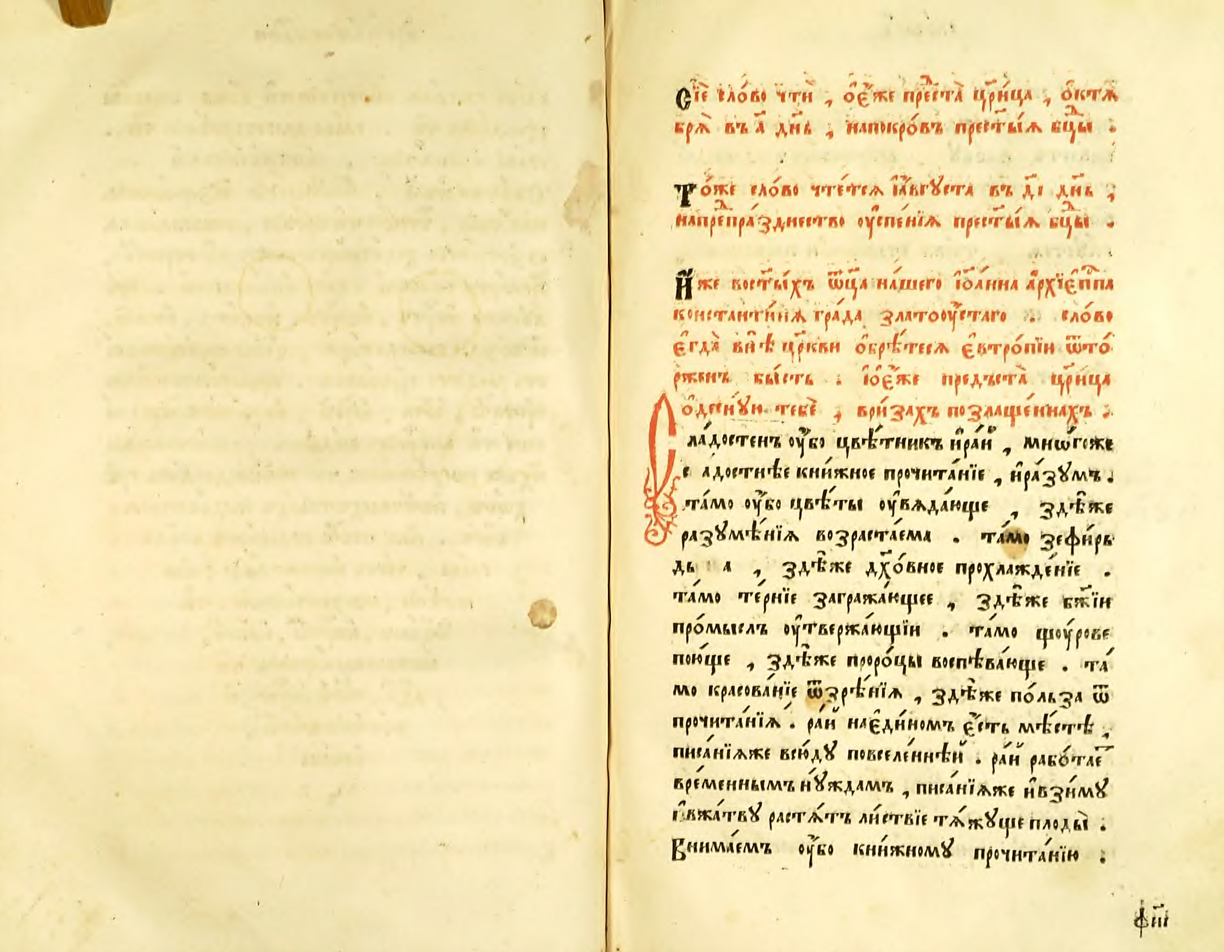 Сїѐ сло́во чтѝ , ѻ҆є҆́же преⷭ҇та̀ цр҃и́ца , ѻ҆ктѧ
брѧ̀ въ а҃ дн҃ь , напокро́въ прест҃ы́ѧ бц҃ы .
То́же сло́во чте́тсѧ і҆а҆́вгꙋста въ д҃і дн҃ь ;
напреⷣпра́зднество оу҆спе́нїѧ прест҃ы́ѧ бц҃ы .
И҆́же вост҃ы́хъ ѿц҃а на́шего і҆ѻ҆а́нна а҆рхїє҆пⷭ҇па
константи́нѧ гра́да златооу҆́стаго . сло́во
є҆гда̀ внѣ̀ цр҃кви ѻ҆брѣ́тесѧ є҆ѵтро́пїи ѿто́
рженъ бы́сть . і҆ѻ҆є҆́же предъста̀ цр҃и́ца
ѻ҆десну́ю тебѐ , ври́захъ позлаще́ннахъ .
Сла́достенъ оу҆́бо цвѣ́тникъ и҆ра́й , мнѡ́гоже
с адостнѣе кни́жное прочита́нїе , и҆ра́зꙋмъ .
та́мо оу҆́бо цвѣ́ты оу҆вѧда́юще , здѣ́же
разꙋмѣ́нїѧ возраста́ема . та́мо зефи́ръ
ды а , здѣ́же дх҃о́вное прохлажде́нїе .
та́мо те́рнїе загража́ющее , здѣ́же бж҃їи
про́мыслъ оу҆твержа́ющїи . та́мо щоу́рове
пою́ще , здѣ́же проро́цы воспѣва́юще . та́
мо красова́нїе ѿзрѣ́нїѧ , здѣ́же по́льза ѿ
прочита́нїѧ . ра́й нає҆ди́номъ є҆́сть мѣ́стѣ ,
писа́нїѧже всю́дꙋ повселе́ннѣй . ра́й рабо́тае
вре́меннымъ нꙋ́ждамъ , писа́нїѧже и҆взи́мꙋ
и҆вжа́твꙋ растѧ́тъ ли́ствїе тѧ́жꙋще плоды̀ .
Внима́емъ оу҆́бо кни́жномꙋ прочита́нїю .